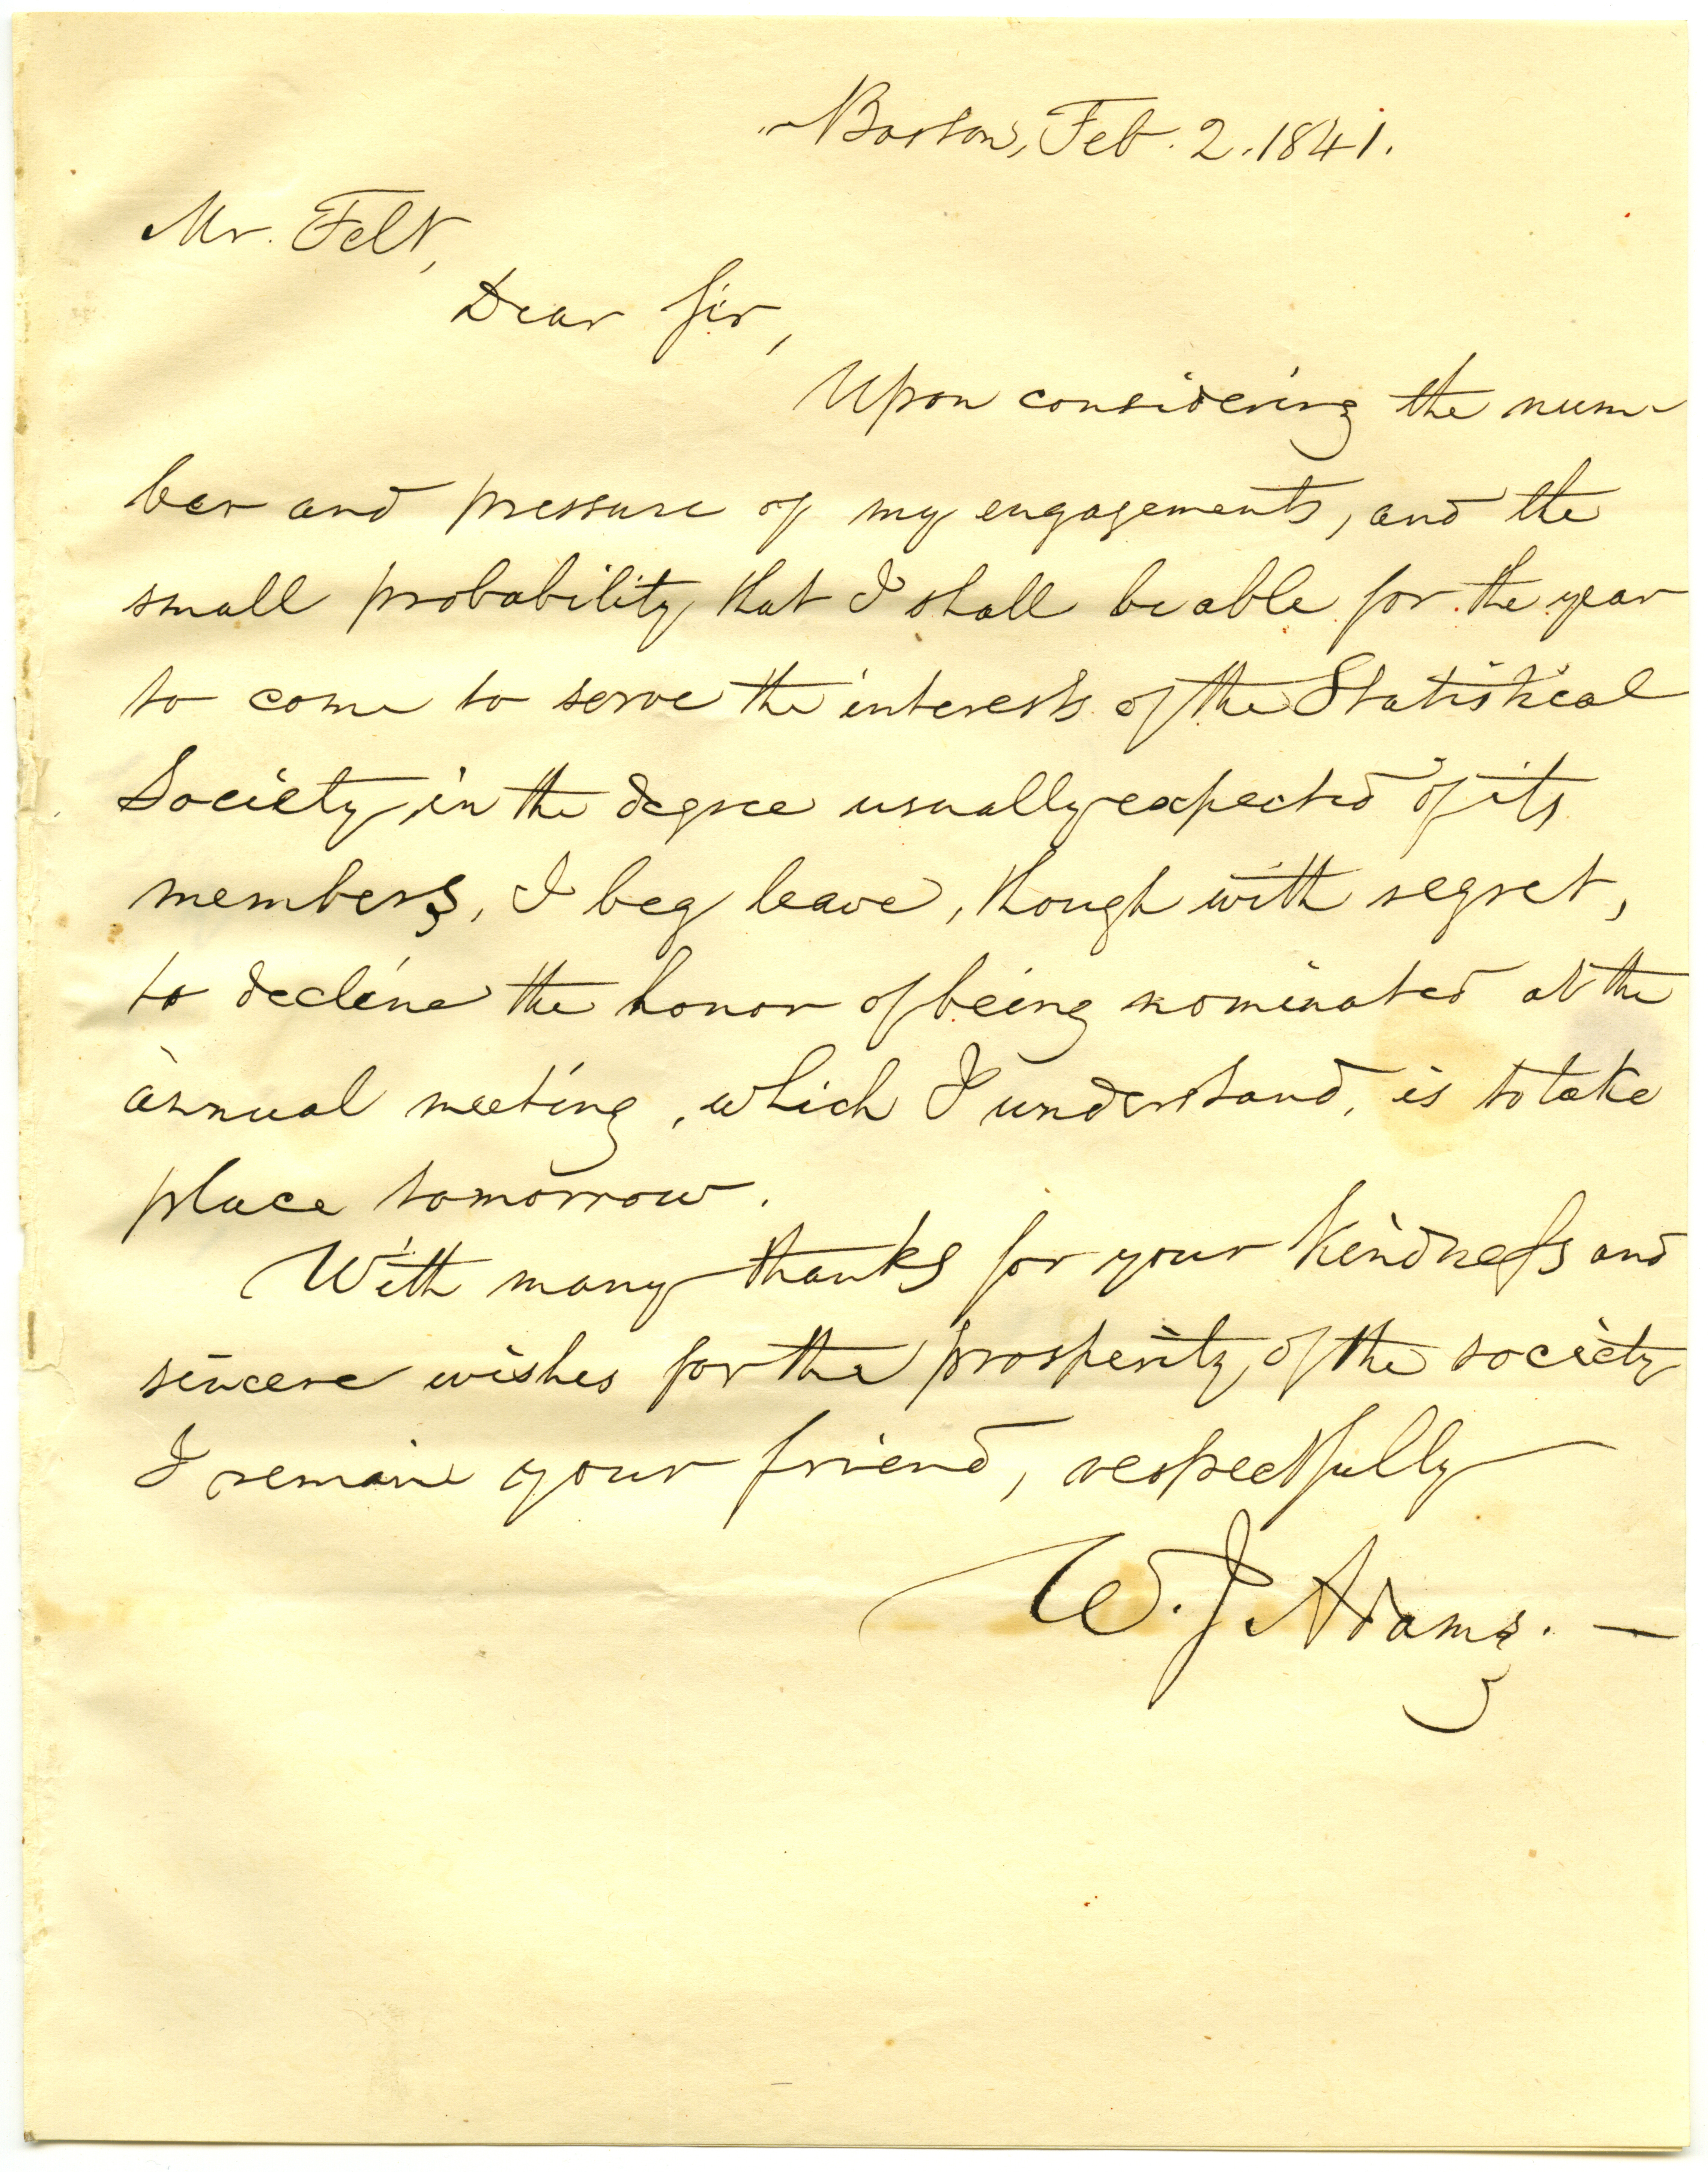 Boston, Feb. 2. 1841.
Mr. Felt,
Dear Sir,
Upon considering the num-
ber and pressure of my engagements, and the
small probability that I shall be able for the year
to come to serve the interests of the Statistical
Society, in the degree usually expected of its
members, I beg leave, though with regret,
to decline the honor of being nominated at the
annual meeting, which I understand, is to take
place tomorrow.
With many thanks for your kindness and
sincere wishes for the prosperity of the society
I remain your friend, respectfully
W. J. Adams. —